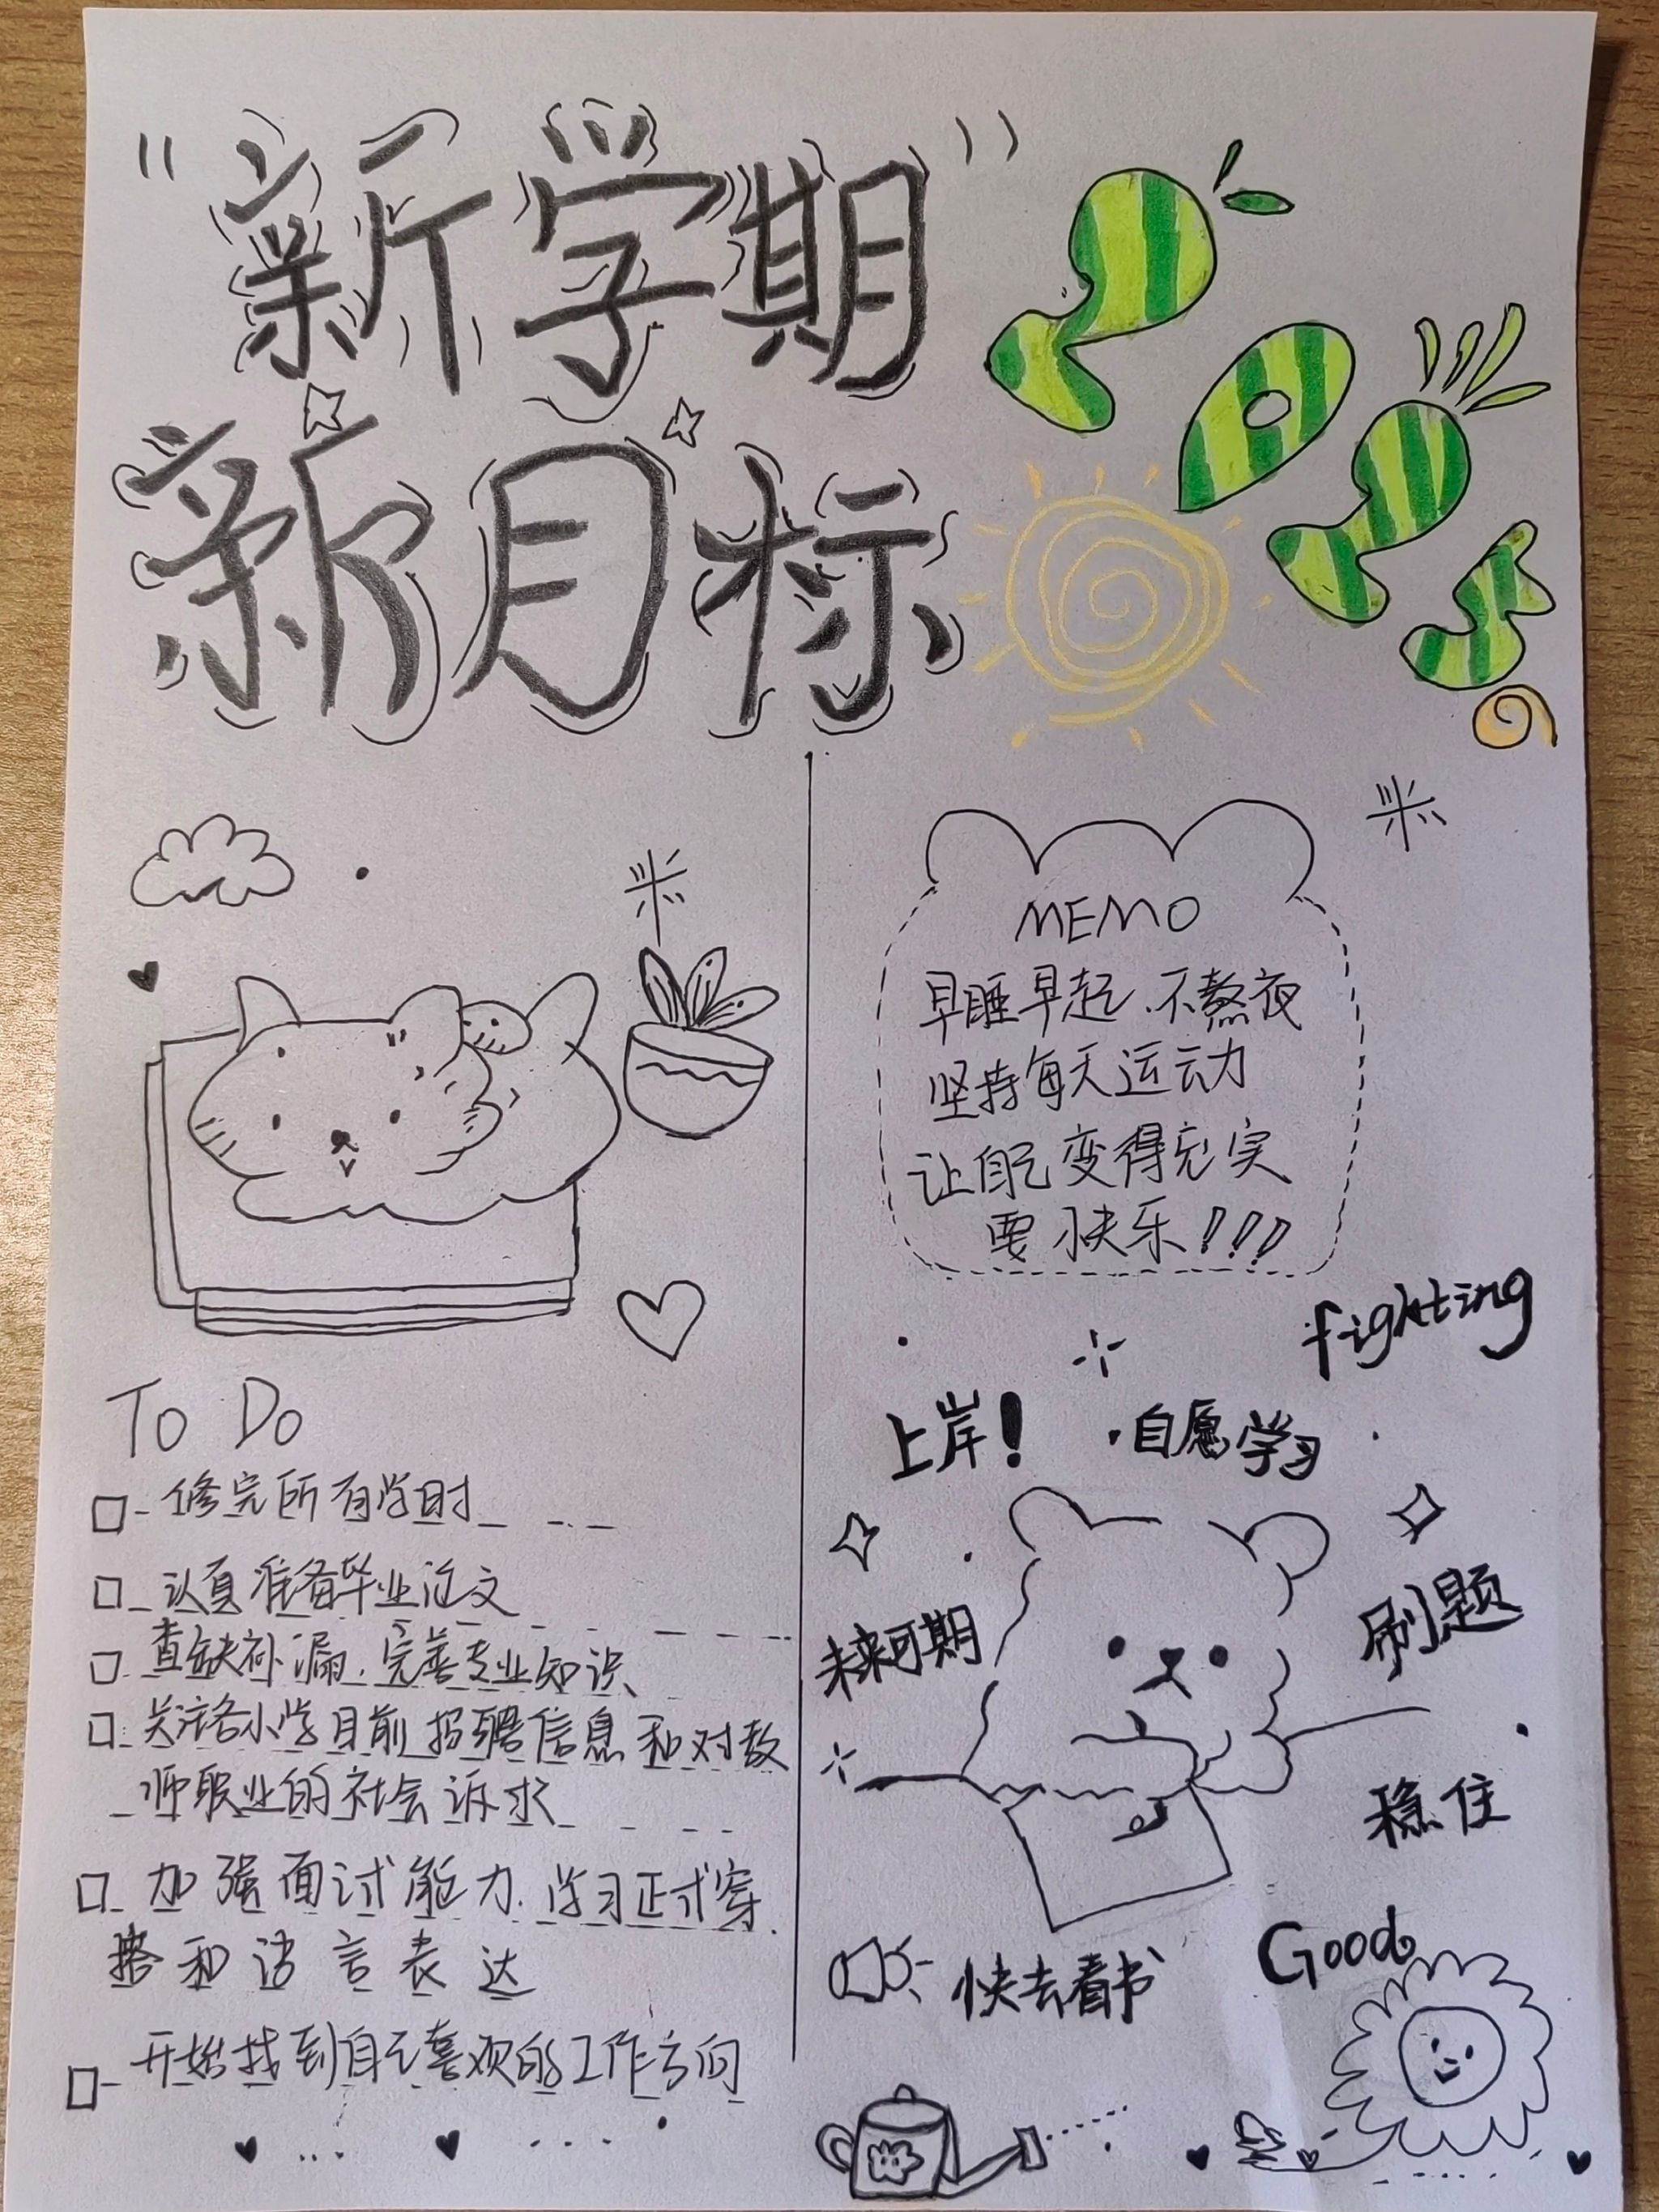 "新学期"
新目标
2025
MEMO
早睡早起、不熬夜
坚持每天运动
让自己变得充实
要快乐!!!
To Do
修完所有学时
认真准备毕业论文
查缺补漏、完善专业知识
关注各小学目前招聘信息和对教
师职业的社会诉求
加强面试能力、学习正式穿
搭和语言表达
开始找到自己喜欢的工作方向
fighting
上岸!
·自愿学习
未来可期
刷题
稳住
快去看书
Good